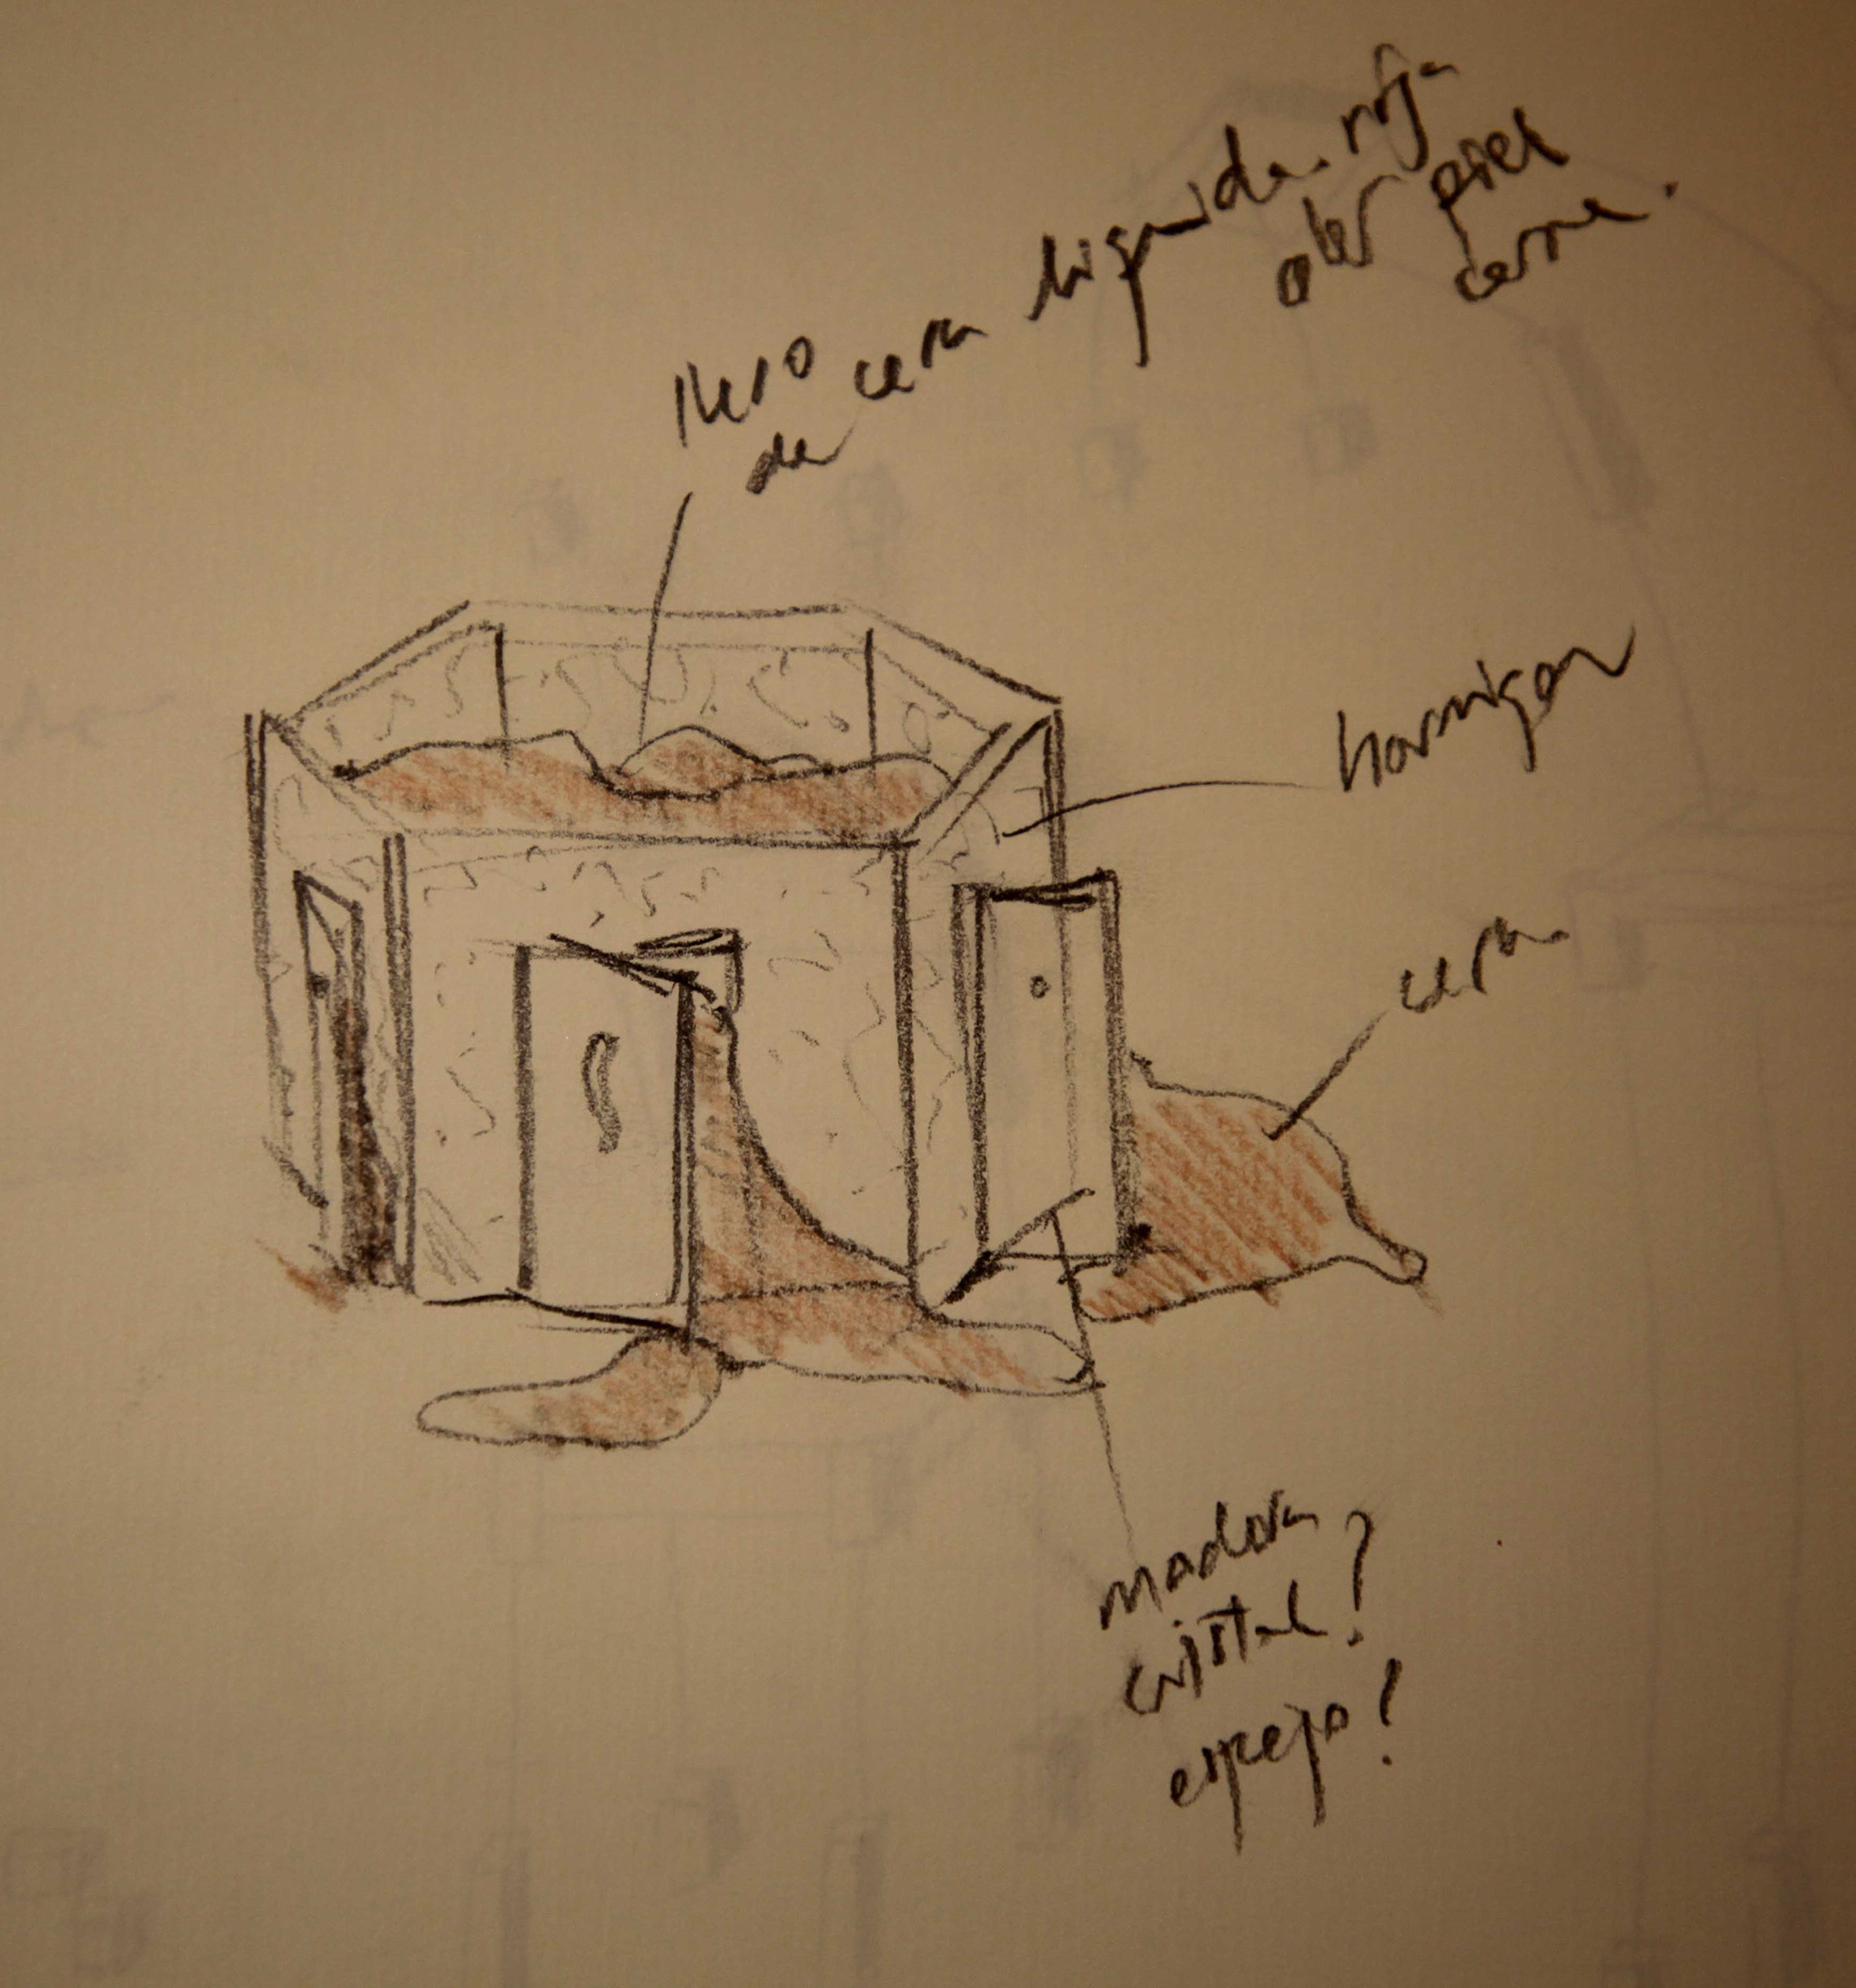 lleno
de cera liquida. roja
olor piel
carne.
hormigon
cera
madera
cristal?
espejo?